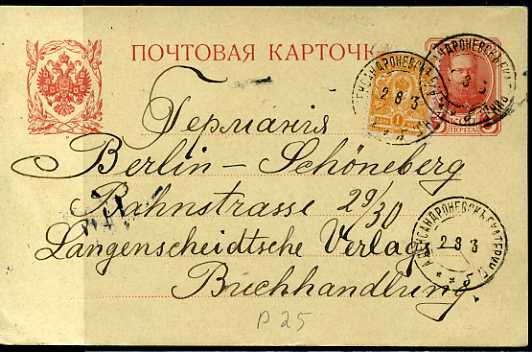 ПОЧТОВАЯ КАРТОЧК
Германія
Berlin – Schöneberg
Bahnstrasse 29/30
Langenscheidtsche Verlag
Buchhandlung
2 8 3
p 25